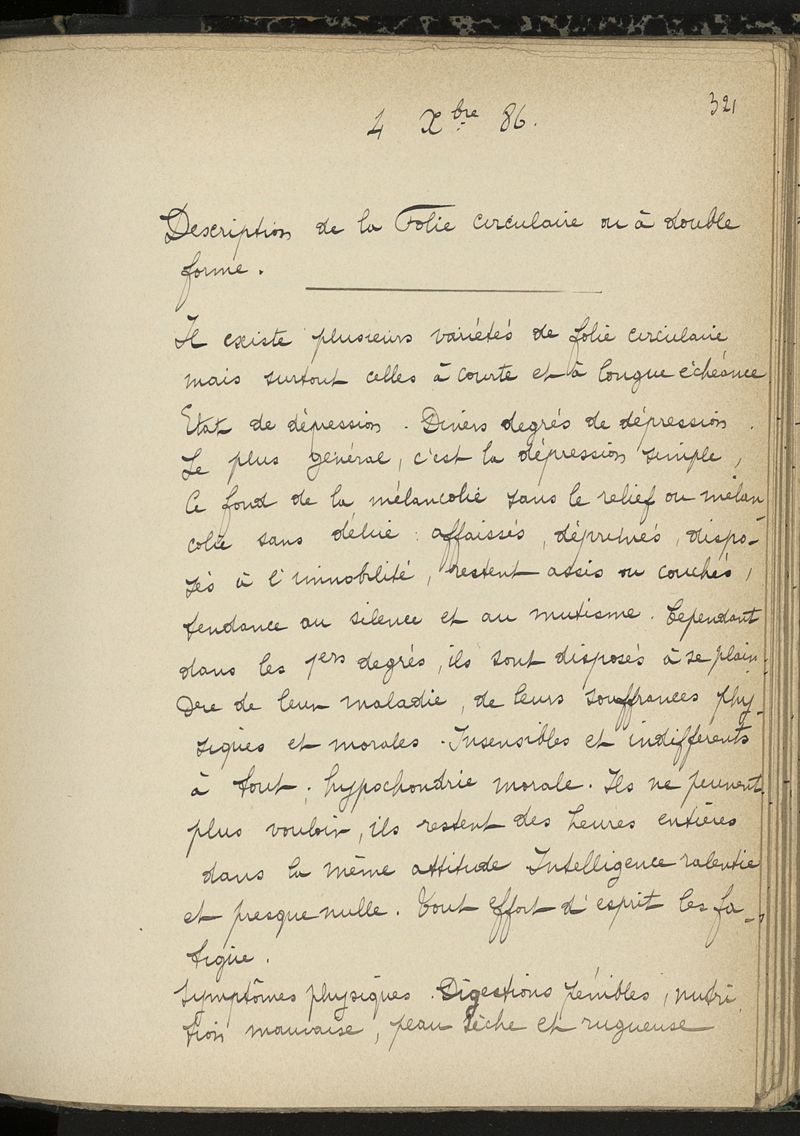 321
4 Xbre 86.
Description de la Folie circulaire ou à double
forme.
Il existe plusieurs variétés de folie circulaire
mais surtout celles à courte et à longue échéance
Etat de dépression. Divers degrés de dépression.
Le plus général, c'est la dépression simple,
le fond de la mélancolie sans le relief ou mélan-
colie sans délire : affaissés, déprimés, dispo-
sés à l'immobilité, restent assis ou couchés,
tendance au silence et au mutisme. Cependant
dans les 1ers degrés, ils sont disposés à se plain-
dre de leur maladie, de leurs souffrances phy-
siques et morales. Insensibles et indifférents
à tout ; hypochondrie morale. Ils ne peuvent
plus vouloir, ils restent des heures entières
dans la même attitude Intelligence ralentie
et presque nulle. Tout effort d'esprit les fa-
tigue.
Symptômes physiques. Digestions pénibles, nutri
tion mauvaise, peau sèche et rugueuse